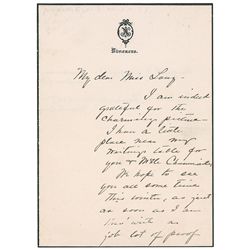 My dear Miss Long-
I am indeed
grateful for the
charming picture.
I have a little
place near my
writing table for
you & Mlle Chaminade.
We hope to see
you all some time
this winter, as just
as soon as I am
thro' with an
job lot of proof